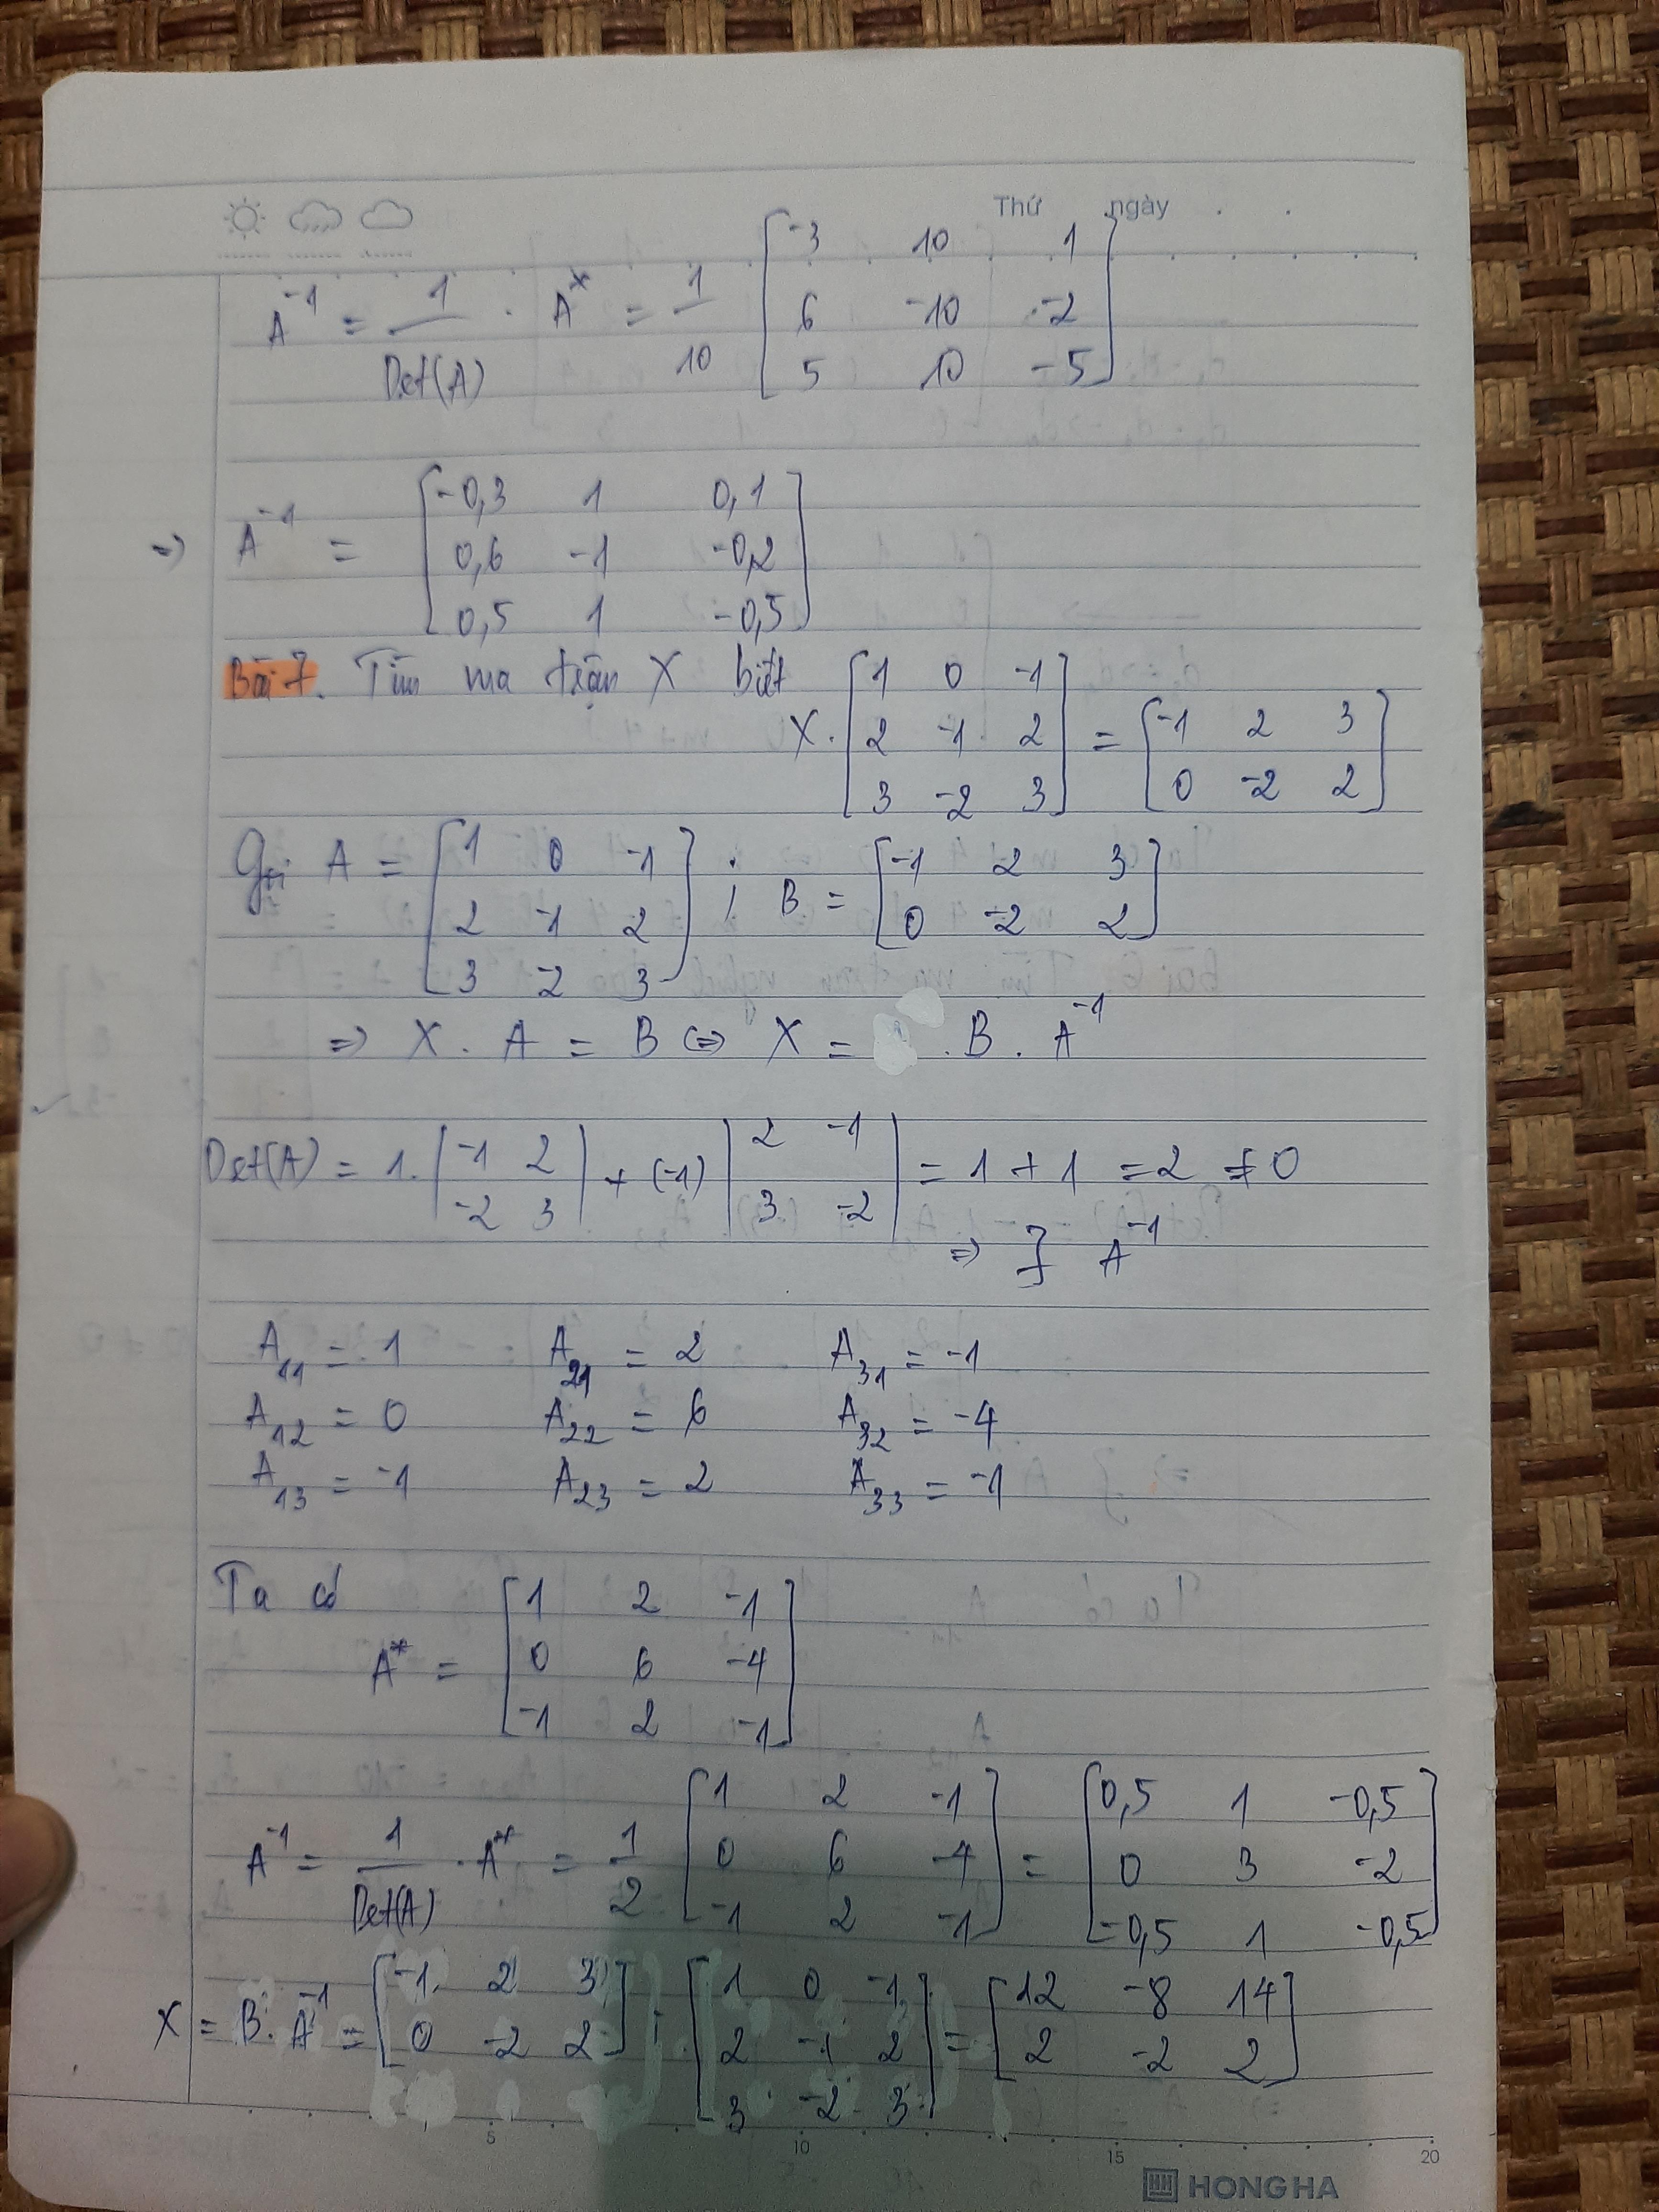 Thứ ngày
A⁻¹ = 1/Det(A) · A* = 1/10 [-3 10 1; 6 -10 -2; 5 10 -5]
=> A⁻¹ = [-0,3 1 0,1; 0,6 -1 -0,2; 0,5 1 -0,5]
Bài 7. Tìm ma trận X biết
X · [1 0 -1; 2 -1 2; 3 -2 3] = [-1 2 3; 0 -2 2]
Gọi A = [1 0 -1; 2 -1 2; 3 -2 3] ; B = [-1 2 3; 0 -2 2]
=> X . A = B <=> X = . B . A⁻¹
Det(A) = 1. |-1 2; -2 3| + (-1) |2 -1; 3 -2| = 1 + 1 = 2 ≠ 0
=> ∃ A⁻¹
A₁₁ = 1 A₂₁ = 2 A₃₁ = -1
A₁₂ = 0 A₂₂ = 6 A₃₂ = -4
A₁₃ = -1 A₂₃ = 2 A₃₃ = -1
Ta có
A* = [1 2 -1; 0 6 -4; -1 2 -1]
A⁻¹ = 1/Det(A) . A* = 1/2 [1 2 -1; 0 6 -4; -1 2 -1] = [0,5 1 -0,5; 0 3 -2; -0,5 1 -0,5]
X = B. A⁻¹ = [-1 2 3; 0 -2 2] . [1 0 -1; 2 -1 2; 3 -2 3] = [12 -8 14; 2 -2 2]
5 10 15 20
HONG HA